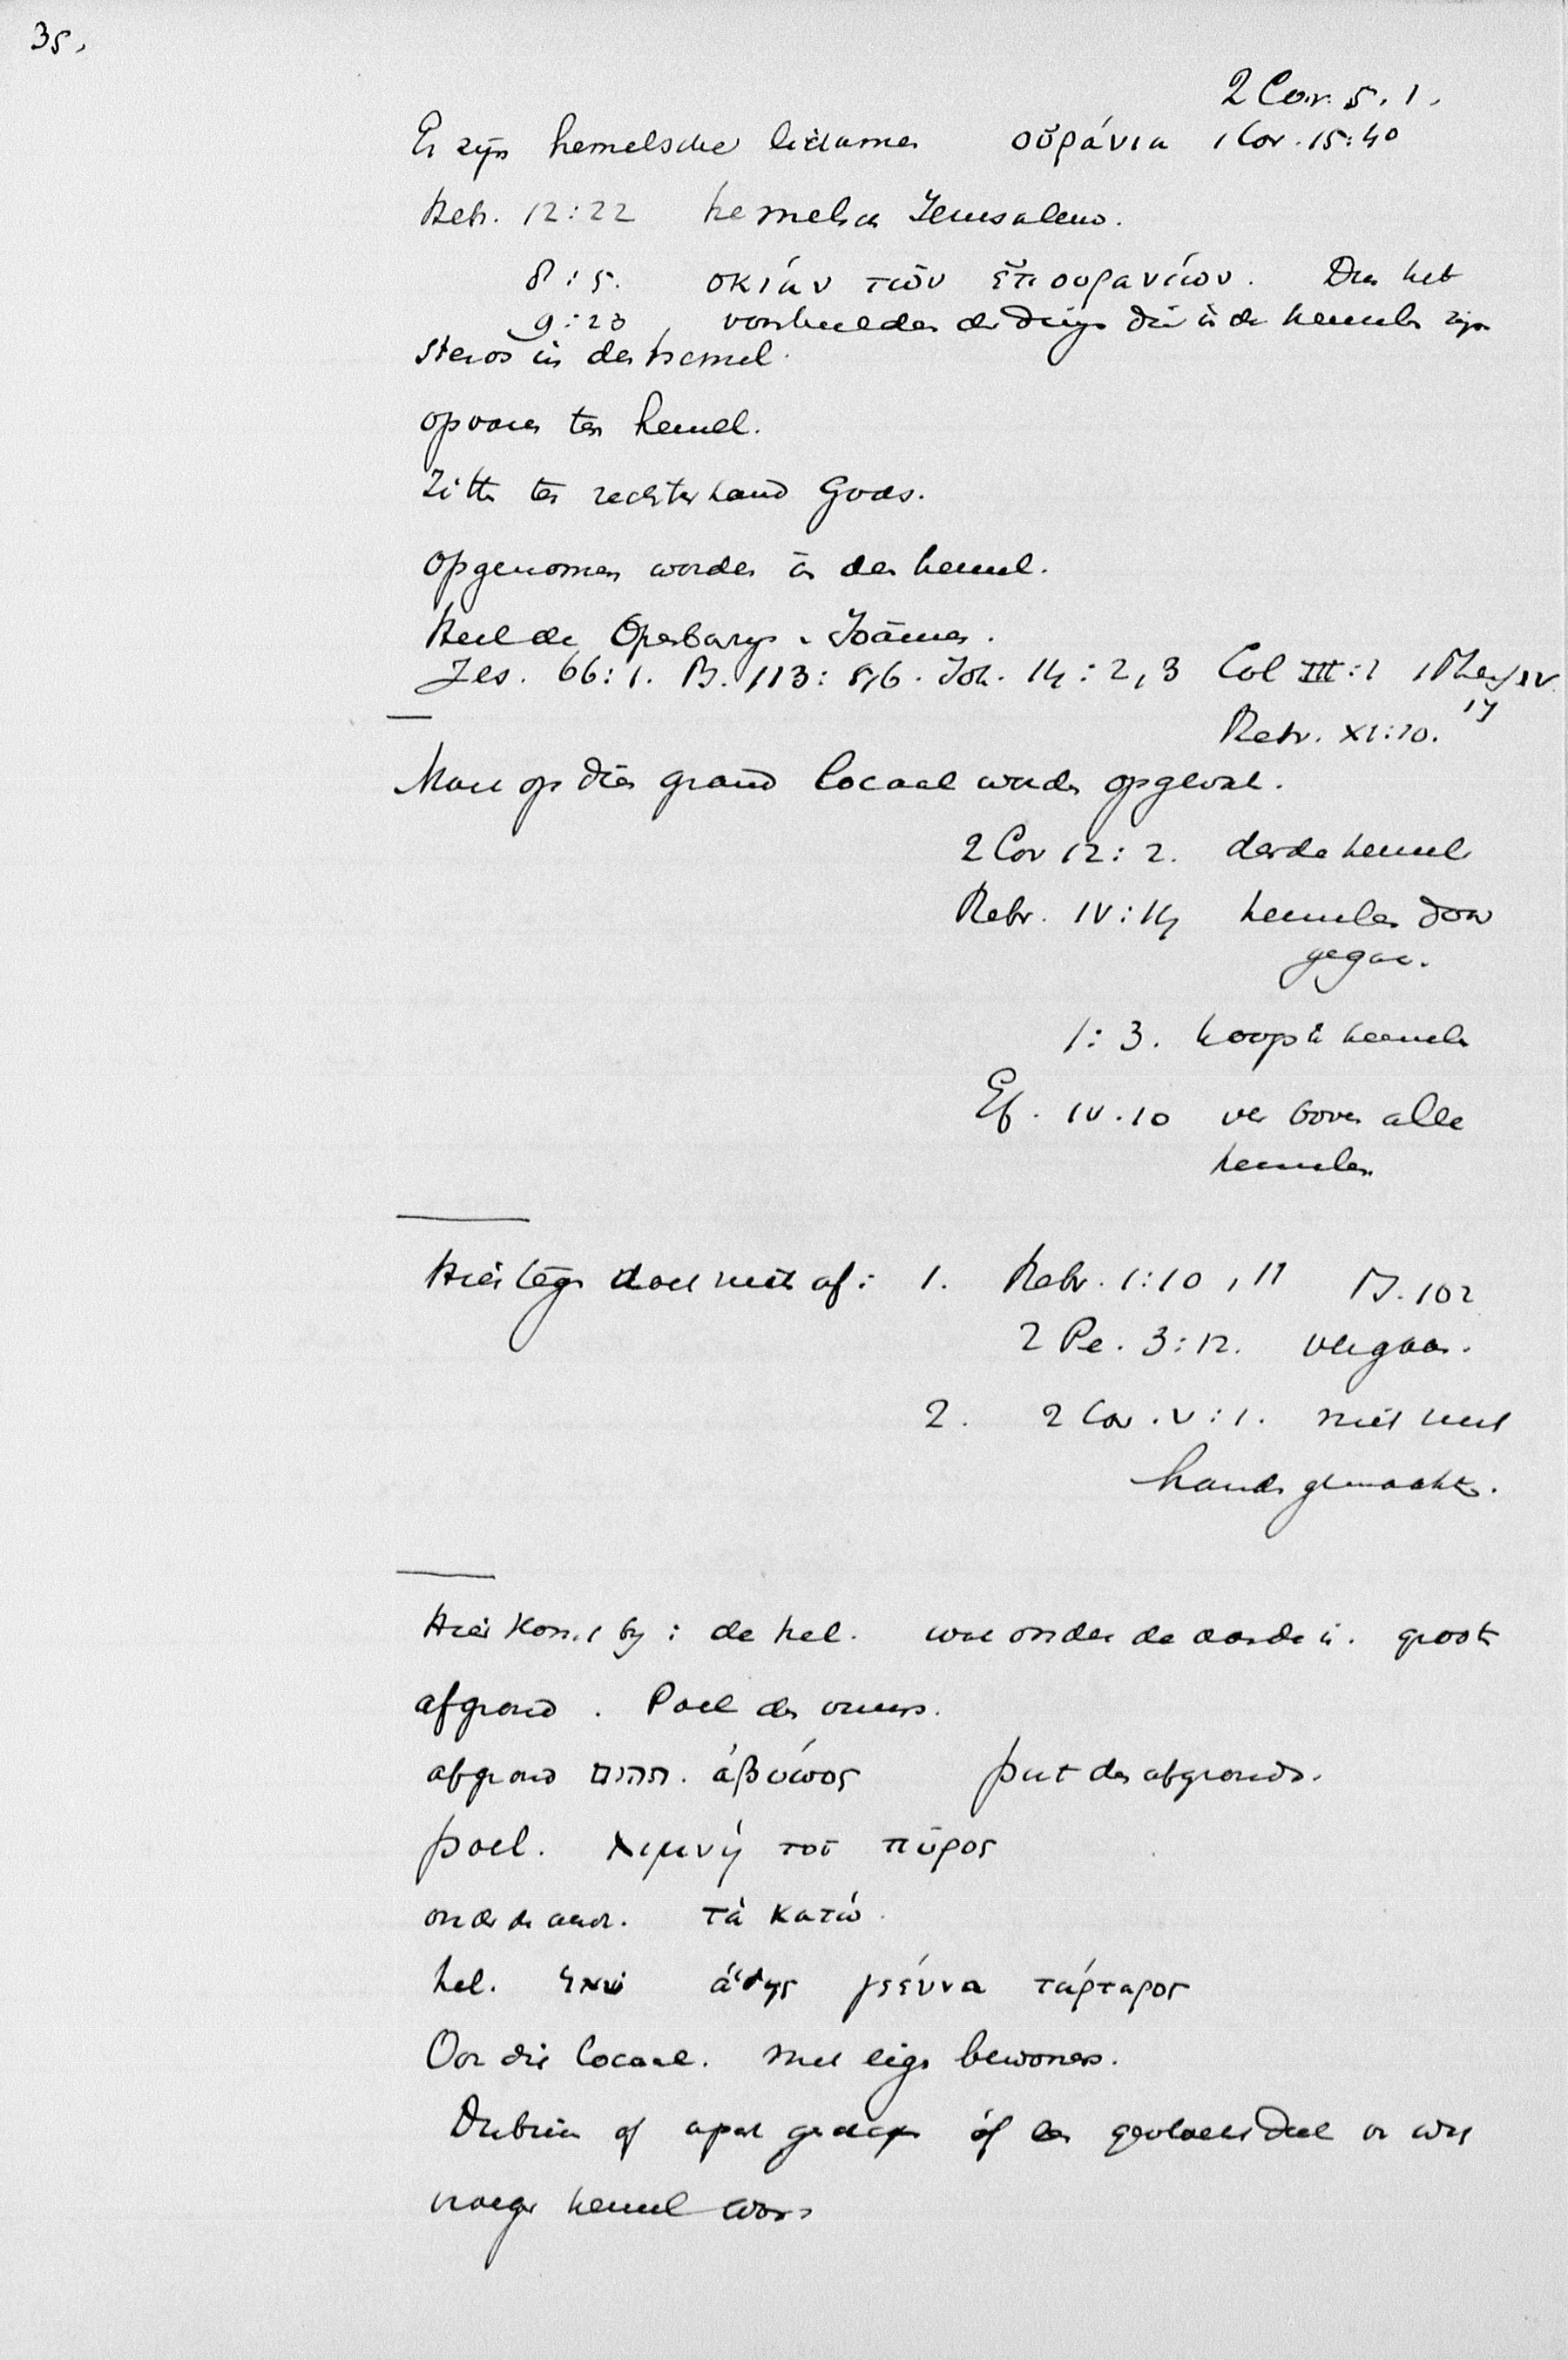 35.
2 Cor. 5.1.
Er zijn hemelsche lichamen οὐράνια 1 Cor. 15:40
Hebr. 12:22 hemelsch Jerusalem.
8:5. σκιάν τῶν ἐπουρανίων. Dus het
9:23, voorbeelden der dingen die in de hemelen zijn
Stenos in den hemel.
opvaren ten hemel.
Zitten ter rechterhand Gods.
opgenomen worden in den hemel.
Heel de Openbaring v. Joannes.
Jes. 66:1. Ps. 113:5,6. Joh. 14:2,3 Col III:1 1 Thess IV
17
Hebr. XI:10.
Moet op dien grond locaal worden opgevat.
2 Cor 12:2. derde hemel
Hebr. IV:14 hemelen door
gegaan.
1:3. hoogste hemelen
Ef. IV.10 ver boven alle
hemelen
Hier tegen doet niet af: 1. Hebr. 1:10, 11 Ps. 102
2 Pe. 3:12. vergaan.
2. 2 Cor. V:1. niet met
handen gemaakt.
Hier komt bij: de hel. wat onder de aarde is. groote
afgrond. Poel des vuurs.
afgrond תהום. ἄβυσσος put des afgronds.
poel. λιμνή τοῦ πῦρος
onder de aard. τὰ κατώ.
hel. שאל ᾅδης γεέννα τάρταρος
Ook die locaal. Met eigen bewoners.
of apart of een deel v. wat
vroeger hemel was